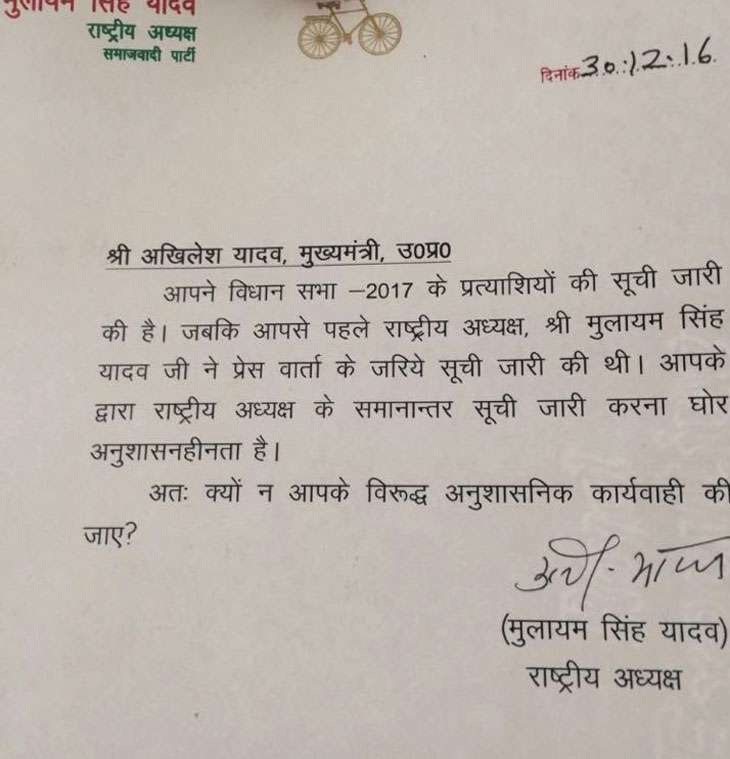 मुलायम सिंह यादव
राष्ट्रीय अध्यक्ष
समाजवादी पार्टी
दिनांक 30.12.16.
श्री अखिलेश यादव, मुख्यमंत्री, उ0प्र0
आपने विधान सभा –2017 के प्रत्याशियों की सूची जारी
की है। जबकि आपसे पहले राष्ट्रीय अध्यक्ष, श्री मुलायम सिंह
यादव जी ने प्रेस वार्ता के जरिये सूची जारी की थी। आपके
द्वारा राष्ट्रीय अध्यक्ष के समानान्तर सूची जारी करना घोर
अनुशासनहीनता है।
अतः क्यों न आपके विरूद्ध अनुशासनिक कार्यवाही की
जाए?
(मुलायम सिंह यादव)
राष्ट्रीय अध्यक्ष